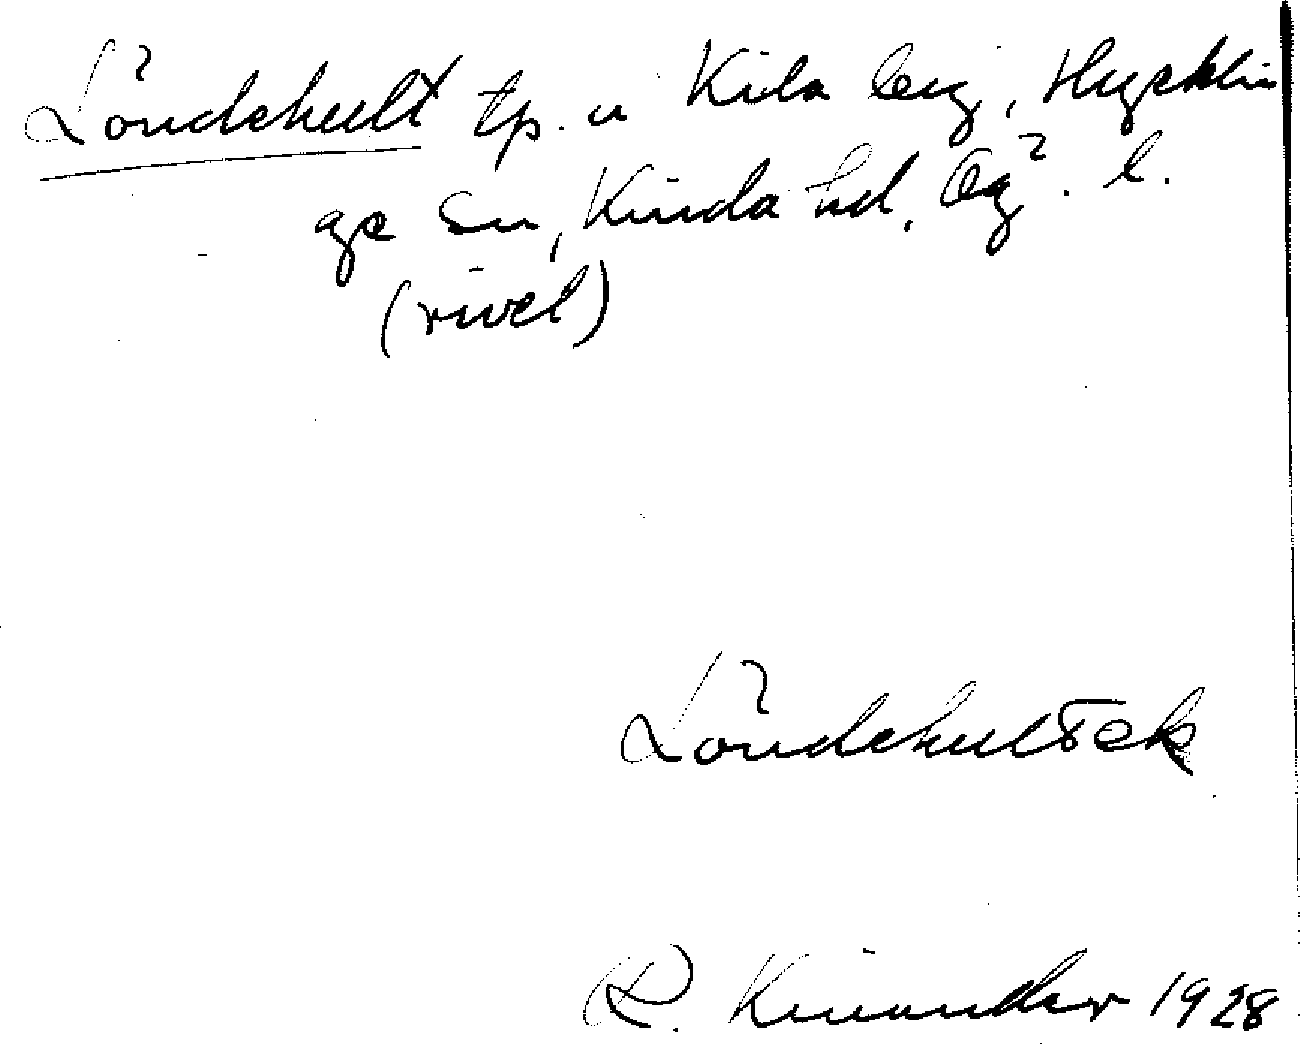 Löndehult tp. u Kila by, Hycklin
ge sn, Kinda hd, Ög. l.
(rivet)
Löndehultek
R. Kinander 1928